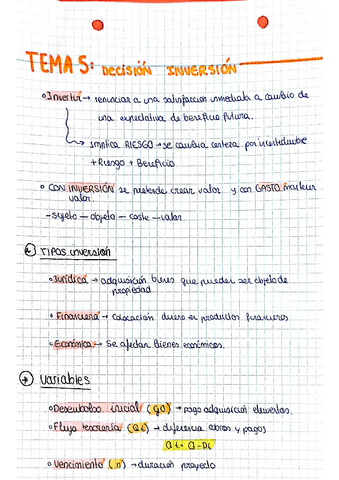 TEMA 5: DECISIÓN INVERSIÓN
• Invertir → renunciar a una satisfaccion inmediata a cambio de
una expectativa de beneficio futura.
→ implica RIESGO → se cambia certeza por incertidumbre
+ Riesgo + Beneficio
• CON INVERSIÓN se pretende crear valor y con GASTO mantener
valor.
- sujeto — objeto — coste — valor.
TIPOS inversión
• Jurídica → adquisición bienes que puedan ser objeto de
propiedad
• Financiera → Colocación dinero en productos financieros
• Económica → Se afectan bienes económicos.
Variables
• Desembolso inicial (go) → pago adquisición elementos.
• Flujo tesorería (Qt) → diferencia cobros y pagos
• Vencimiento (n) → duración proyecto